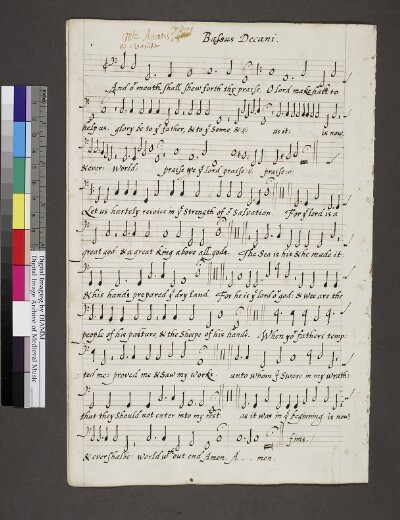 Bassus Decani.
And yr mouth shall shew forth thy praise. O lord make hast to
help us. glory be to ye father, & to ye Sonne & c: as it: is now
& ever: world: praise ye ye lord praise: praise:
Let us hartely rejoice in ye Strength of or Salvation For ye lord is a
great god & a great King above all gods. The Sea is his & he made it:
& his hands prepared ye dry land. For he is ye lord or god: & wee are the
people of his pasture & the Sheepe of his hands. When yor fathers temp:
ted me: proved me & Saw my works: unto whom I Swore in my wrath:
that they Should not enter into my rest as it was in ye beginning is now
& ever shalbe: world wthout end Amen. A--men. finis.
Digital Imaging by DIAMM
Digital Image Archive of Medieval Music